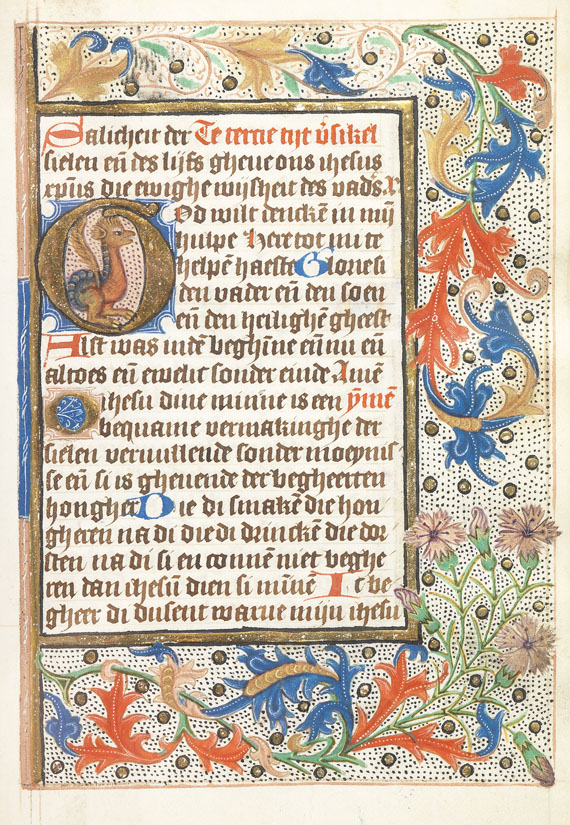 Salicheit der Te tercie tijt v̄sikel
sielen en̄ des lijfs gheue ons ihesus
xp̄us die ewighe wijsheit des vad's
God wilt dencken̄ in mijn
hulpe Here tot mi te
helpen̄ haeste Glorie si
den vader en̄ den soen
en̄ den heilighen̄ gheest
Alst was inden̄ beghin̄ne en̄ nu en̄
altoes en̄ ewelic sonder einde Amen̄
ihesu dine minne is een ȳmen̄
bequame vermakinghe der
sielen vervullende sonder moeynis
se en̄ si is gheuende der begheerten
hongher Die di smaken̄ die hon
gheren na di die di drincken̄ die dor
sten na di si en connen̄ niet beghe
ren dan ihesum̄ dien si min̄nen̄ Ic be
gheer di dusent warue mijn ihesu